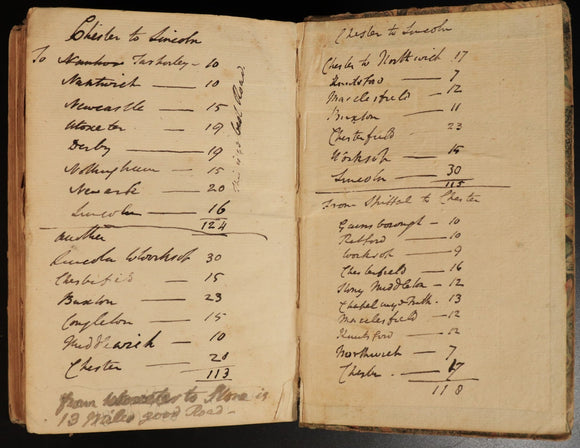 Chester to Lincoln
To Tarporley - 10
Nantwich — 10
Newcastle — 15
Utoxeter — 19
Derby — 19
Nottingham — 15
Newark — 20
Lincoln — 16
124
this is a bad Road
another
Lincoln Worksop 30
Chesterfield — 15
Buxton — 23
Congleton — 15
Middlewich — 10
Chester — 20
113
from to Stone is
13 Miles good Road -
Chester to Lincoln
Chester to Northwich 17
Knutsford — 7
Macclesfield — 12
Buxton — 11
Chesterfield 23
Worksop — 15
Lincoln — 30
115
From Spittal to Chester
Gainsborough - 10
Retford — 10
Worksop — 9
Chesterfield — 16
Stony Middleton - 12
Chapel in Frith. 13
Macclesfield — 12
Knutsford — 12
Northwich — 7
Chester . — 17
118